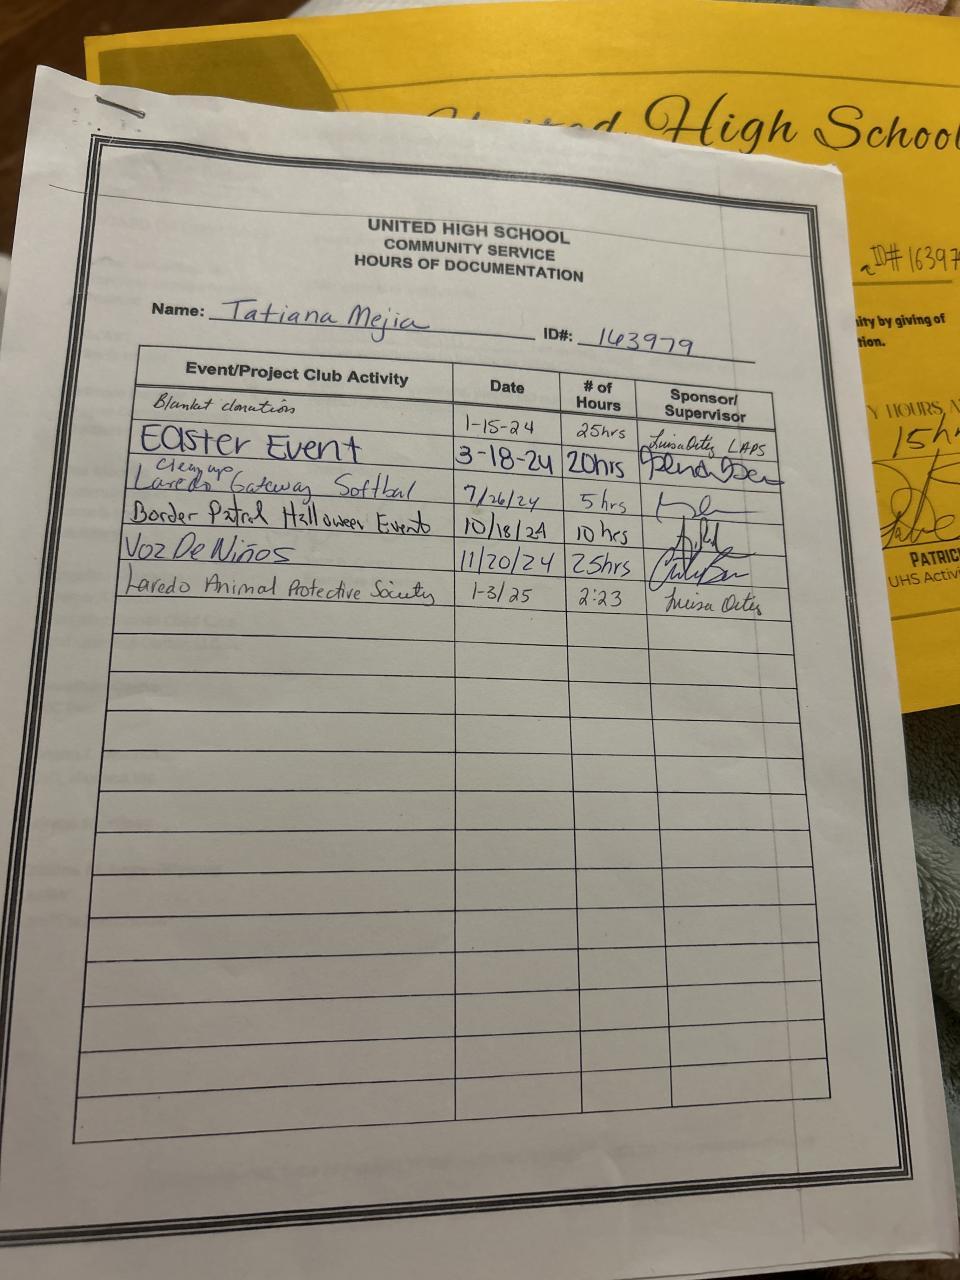 United High School
ID# 16397
ity by giving of
tion.
Y HOURS, A
15h
PATRIC
UHS Activi
UNITED HIGH SCHOOL
COMMUNITY SERVICE
HOURS OF DOCUMENTATION
Name: Tatiana Mejia ID#: 163979
Event/Project Club Activity Date # of Hours Sponsor/ Supervisor
Blanket donations 1-15-24 25hrs Luisa Ortiz LAPS
Easter Event 3-18-24 20hrs
clean up
Laredo Gateway Softbal 7/26/24 5 hrs
Border Patrol Halloween Event 10/18/24 10 hrs
Voz De Niños 11/20/24 25hrs
Laredo Animal Protective Society 1-3/25 2:23 Luisa Ortiz